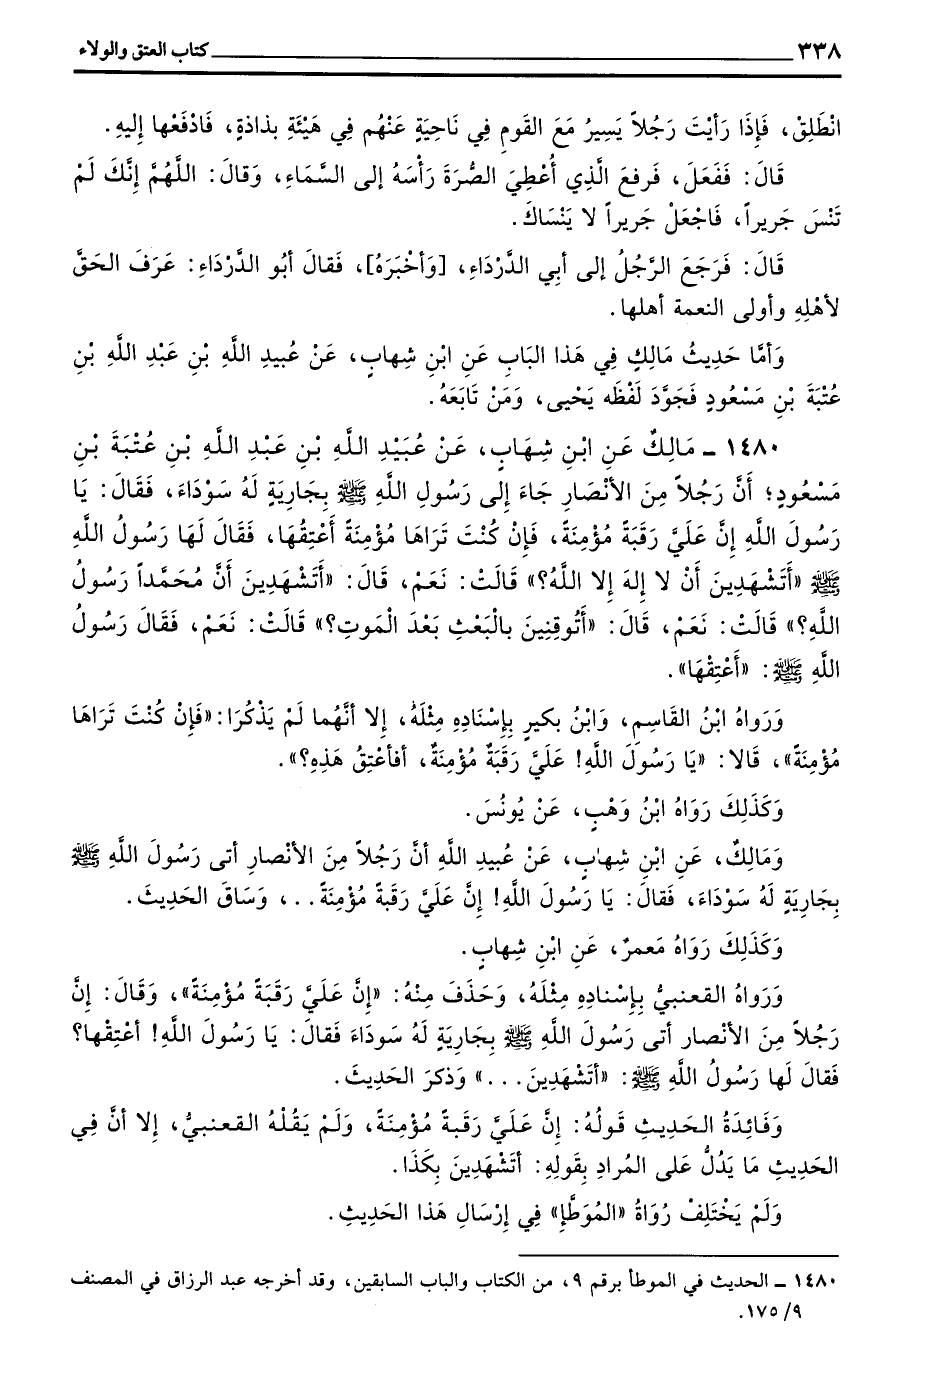 ٣٣٨ كتاب العتق والولاء
انْطَلِقْ، فَإِذَا رَأَيْتَ رَجُلاً يَسِيرُ مَعَ القَومِ فِي نَاحِيَةٍ عَنْهُم فِي هَيْئَةِ بذاذةٍ، فَادْفَعْها إليهِ.
قَالَ: فَفَعَلَ، فَرفعَ الَّذِي أُعْطِيَ الصُّرَةَ رَأْسَهُ إلى السَّمَاءِ، وَقالَ: اللَّهُمَّ إنَّكَ لَمْ
تَنْسَ جَريراً، فَاجْعَلْ جَريراً لا يَنْسَاكَ.
قَالَ: فَرَجَعَ الرَّجُلُ إلى أبِي الدَّرْدَاءِ، [وَأخْبَرَهُ]، فَقالَ أبُو الدَّرْدَاءِ: عَرَفَ الحَقَّ
لأهْلِهِ وأولى النعمة أهلها.
وَأمَّا حَدِيثُ مَالِكٍ فِي هَذا البَابِ عَنِ ابْنِ شِهابٍ، عَنْ عُبيدِ اللَّهِ بْنِ عَبْدِ اللَّهِ بْنِ
عُتْبَةَ بْنِ مَسْعُودٍ فَجَوَّدَ لَفْظَه يَحْيى، وَمَنْ تَابَعَهُ.
١٤٨٠ ـ مَالِكٌ عَنِ ابْنِ شِهَابٍ، عَنْ عُبَيْدِ اللَّهِ بْنِ عَبْدِ اللَّهِ بْنِ عُتْبَةَ بْنِ
مَسْعُودٍ؛ أَنَّ رَجُلاً مِنَ الأَنْصَارِ جَاءَ إِلَى رَسُولِ اللَّهِ ﷺ بِجَارِيَةٍ لَهُ سَوْدَاءَ، فَقَالَ: يَا
رَسُولَ اللَّهِ إنَّ عَلَيَّ رَقَبَةً مُؤْمِنَةً، فَإنْ كُنْتَ تَرَاهَا مُؤْمِنَةً أَعْتِقُهَا، فَقَالَ لَهَا رَسُولُ اللَّهِ
ﷺ «أَتَشْهَدِينَ أَنْ لا إلهَ إلا اللَّهُ؟» قَالَتْ: نَعَمْ، قَالَ: «أَتَشْهَدِينَ أَنَّ مُحَمَّداً رَسُولُ
اللَّهِ؟» قَالَتْ: نَعَمْ، قَالَ: «أَتُوقِنِينَ بالْبَعْثِ بَعْدَ الْمَوتِ؟» قَالَتْ: نَعَمْ، فَقَالَ رَسُولُ
اللَّهِ ﷺ: «أَعْتِقْهَا».
وَرَواهُ ابْنُ القَاسِمِ، وَابْنُ بكيرٍ بِإِسْنَادِهِ مِثْلَهُ، إلا أنَّهُما لَمْ يَذْكُرَا: «فَإنْ كُنْتَ تَرَاهَا
مُؤْمِنَةً»، قَالا: «يَا رَسُولَ اللَّهِ! عَلَيَّ رَقَبَةٌ مُؤْمِنَةٌ، أفأعْتِقُ هَذِهِ؟».
وَكَذَلِكَ رَوَاهُ ابْنُ وَهْبٍ، عَنْ يُونُسَ.
وَمَالِكٌ، عَنِ ابْنِ شِهابٍ، عَنْ عُبيدِ اللَّهِ أنَّ رَجُلاً مِنَ الأنْصارِ أتى رَسُولَ اللَّهِ ﷺ
بِجَارِيَةٍ لَهُ سَوْدَاءَ، فَقالَ: يا رَسُولَ اللَّهِ! إنَّ عَلَيَّ رَقَبةً مُؤْمِنَةً...، وَسَاقَ الحَدِيثَ.
وَكَذَلِكَ رَوَاهُ مَعمرٌ، عَنِ ابْنِ شِهابٍ.
وَرَواهُ القعنبيُّ بِإسْنادِهِ مِثْلَهُ، وَحَذَفَ مِنْهُ: «إنَّ عَلَيَّ رَقَبَةً مُؤْمِنَةً»، وَقَالَ: إنَّ
رَجُلاً مِنَ الأنْصار أتى رَسُولَ اللَّهِ ﷺ بِجَارِيَةٍ لَهُ سَودَاءَ فَقالَ: يَا رَسُولَ اللَّهِ! أعْتِقْها؟
فَقالَ لَها رَسُولُ اللَّهِ ﷺ: «أتَشْهَدِينَ...» وَذكرَ الحَدِيثَ.
وَفَائِدَةُ الحَدِيثِ قَولُهُ: إنَّ عَلَيَّ رَقَبةً مُؤْمِنَةً، وَلَمْ يَقُلْهُ القعنبيُّ، إلا أنَّ فِي
الحَدِيثِ مَا يَدُلُّ عَلى المُرادِ بِقَولِهِ: أتَشْهَدِينَ بِكَذَا.
وَلَمْ يَخْتَلِفْ رُوَاةُ «المُوَطَّإِ» فِي إرْسَالِ هَذا الحَدِيثِ.
١٤٨٠ ـ الحديث في الموطأ برقم ٩، من الكتاب والباب السابقين، وقد أخرجه عبد الرزاق في المصنف
٩/ ١٧٥.